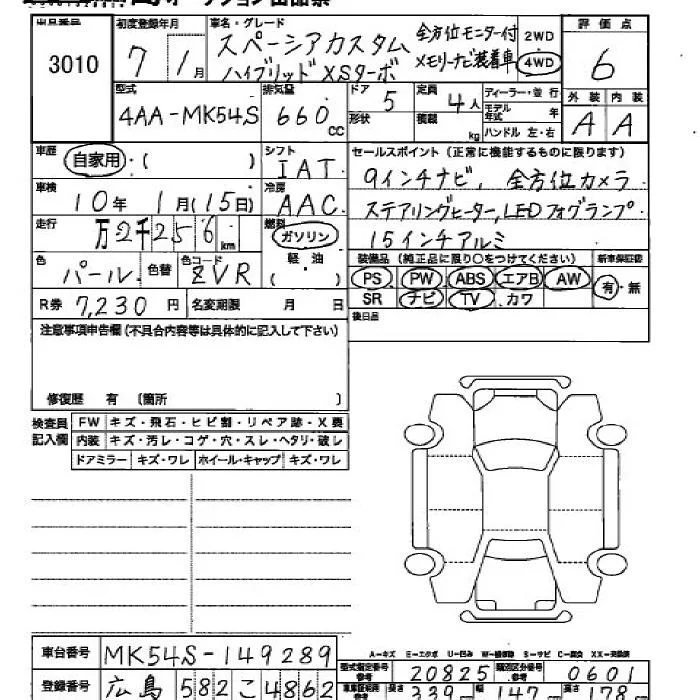 出品番号 初度登録年月 車名・グレード 評価点
3010 7 1月 スペーシアカスタム 全方位モニター付 2WD 6
ハイブリッド XSターボ メモリーナビ装着車 4WD
型式 排気量 ドア 定員 ディーラー・並行 外装 内装
4AA-MK54S 660CC 5 4人 モデル年式 年 A A
形状 積載 kg ハンドル 左・右
車歴 自家用・( ) シフト セールスポイント (正常に機能するものに限ります)
IAT 9インチナビ, 全方位カメラ
車検 10年 1月(15日) 冷房 AAC ステアリングヒーター, LEDフォグランプ
走行 万2千256km 燃料 ガソリン 15インチアルミ
軽油 装備品 (純正品に限り○をつけてください) 新車保証書
色 パール 色替 色コード ZVR ( ) PS PW ABS エアB AW 有・無
R券 7,230円 名変期限 月 日 SR ナビ TV カワ
注意事項申告欄 (不具合内容等は具体的に記入して下さい) 後日品
修復歴 有 (箇所 )
検査員 FW キズ・飛石・ヒビ割・リペア跡・X要
記入欄 内装 キズ・汚レ・コゲ・穴・スレ・ヘタリ・破レ
ドアミラー キズ・ワレ ホイール・キャップ キズ・ワレ
A-キズ E-エクボ U-凹み W-補修跡 S-サビ C-腐食 XX-交換済
車台番号 MK54S-149289 型式指定番号 参考 20825 類別区分番号 参考 0601
登録番号 広島 582 こ 4862 長さ 339 幅 147 高さ 178